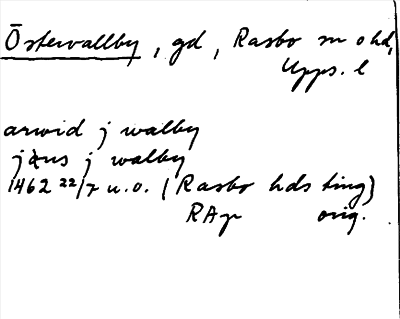 Östervallby, gd, Rasbo sn o hd,
Upps. l
arwid j walby
jäns j walby
1462 22/7 u.o. (Rasbo hds ting)
RAp orig.